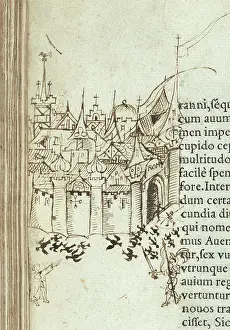 ranni, seq
cum auum
men impe
cupido cep
multitudo
facile spen
fore. Inter
dum certa
cundia dit
qui nome
mus Auen
tur, sex vu
vtrunque
auium reg
vertuntur
nouos tra
cisset, Sic